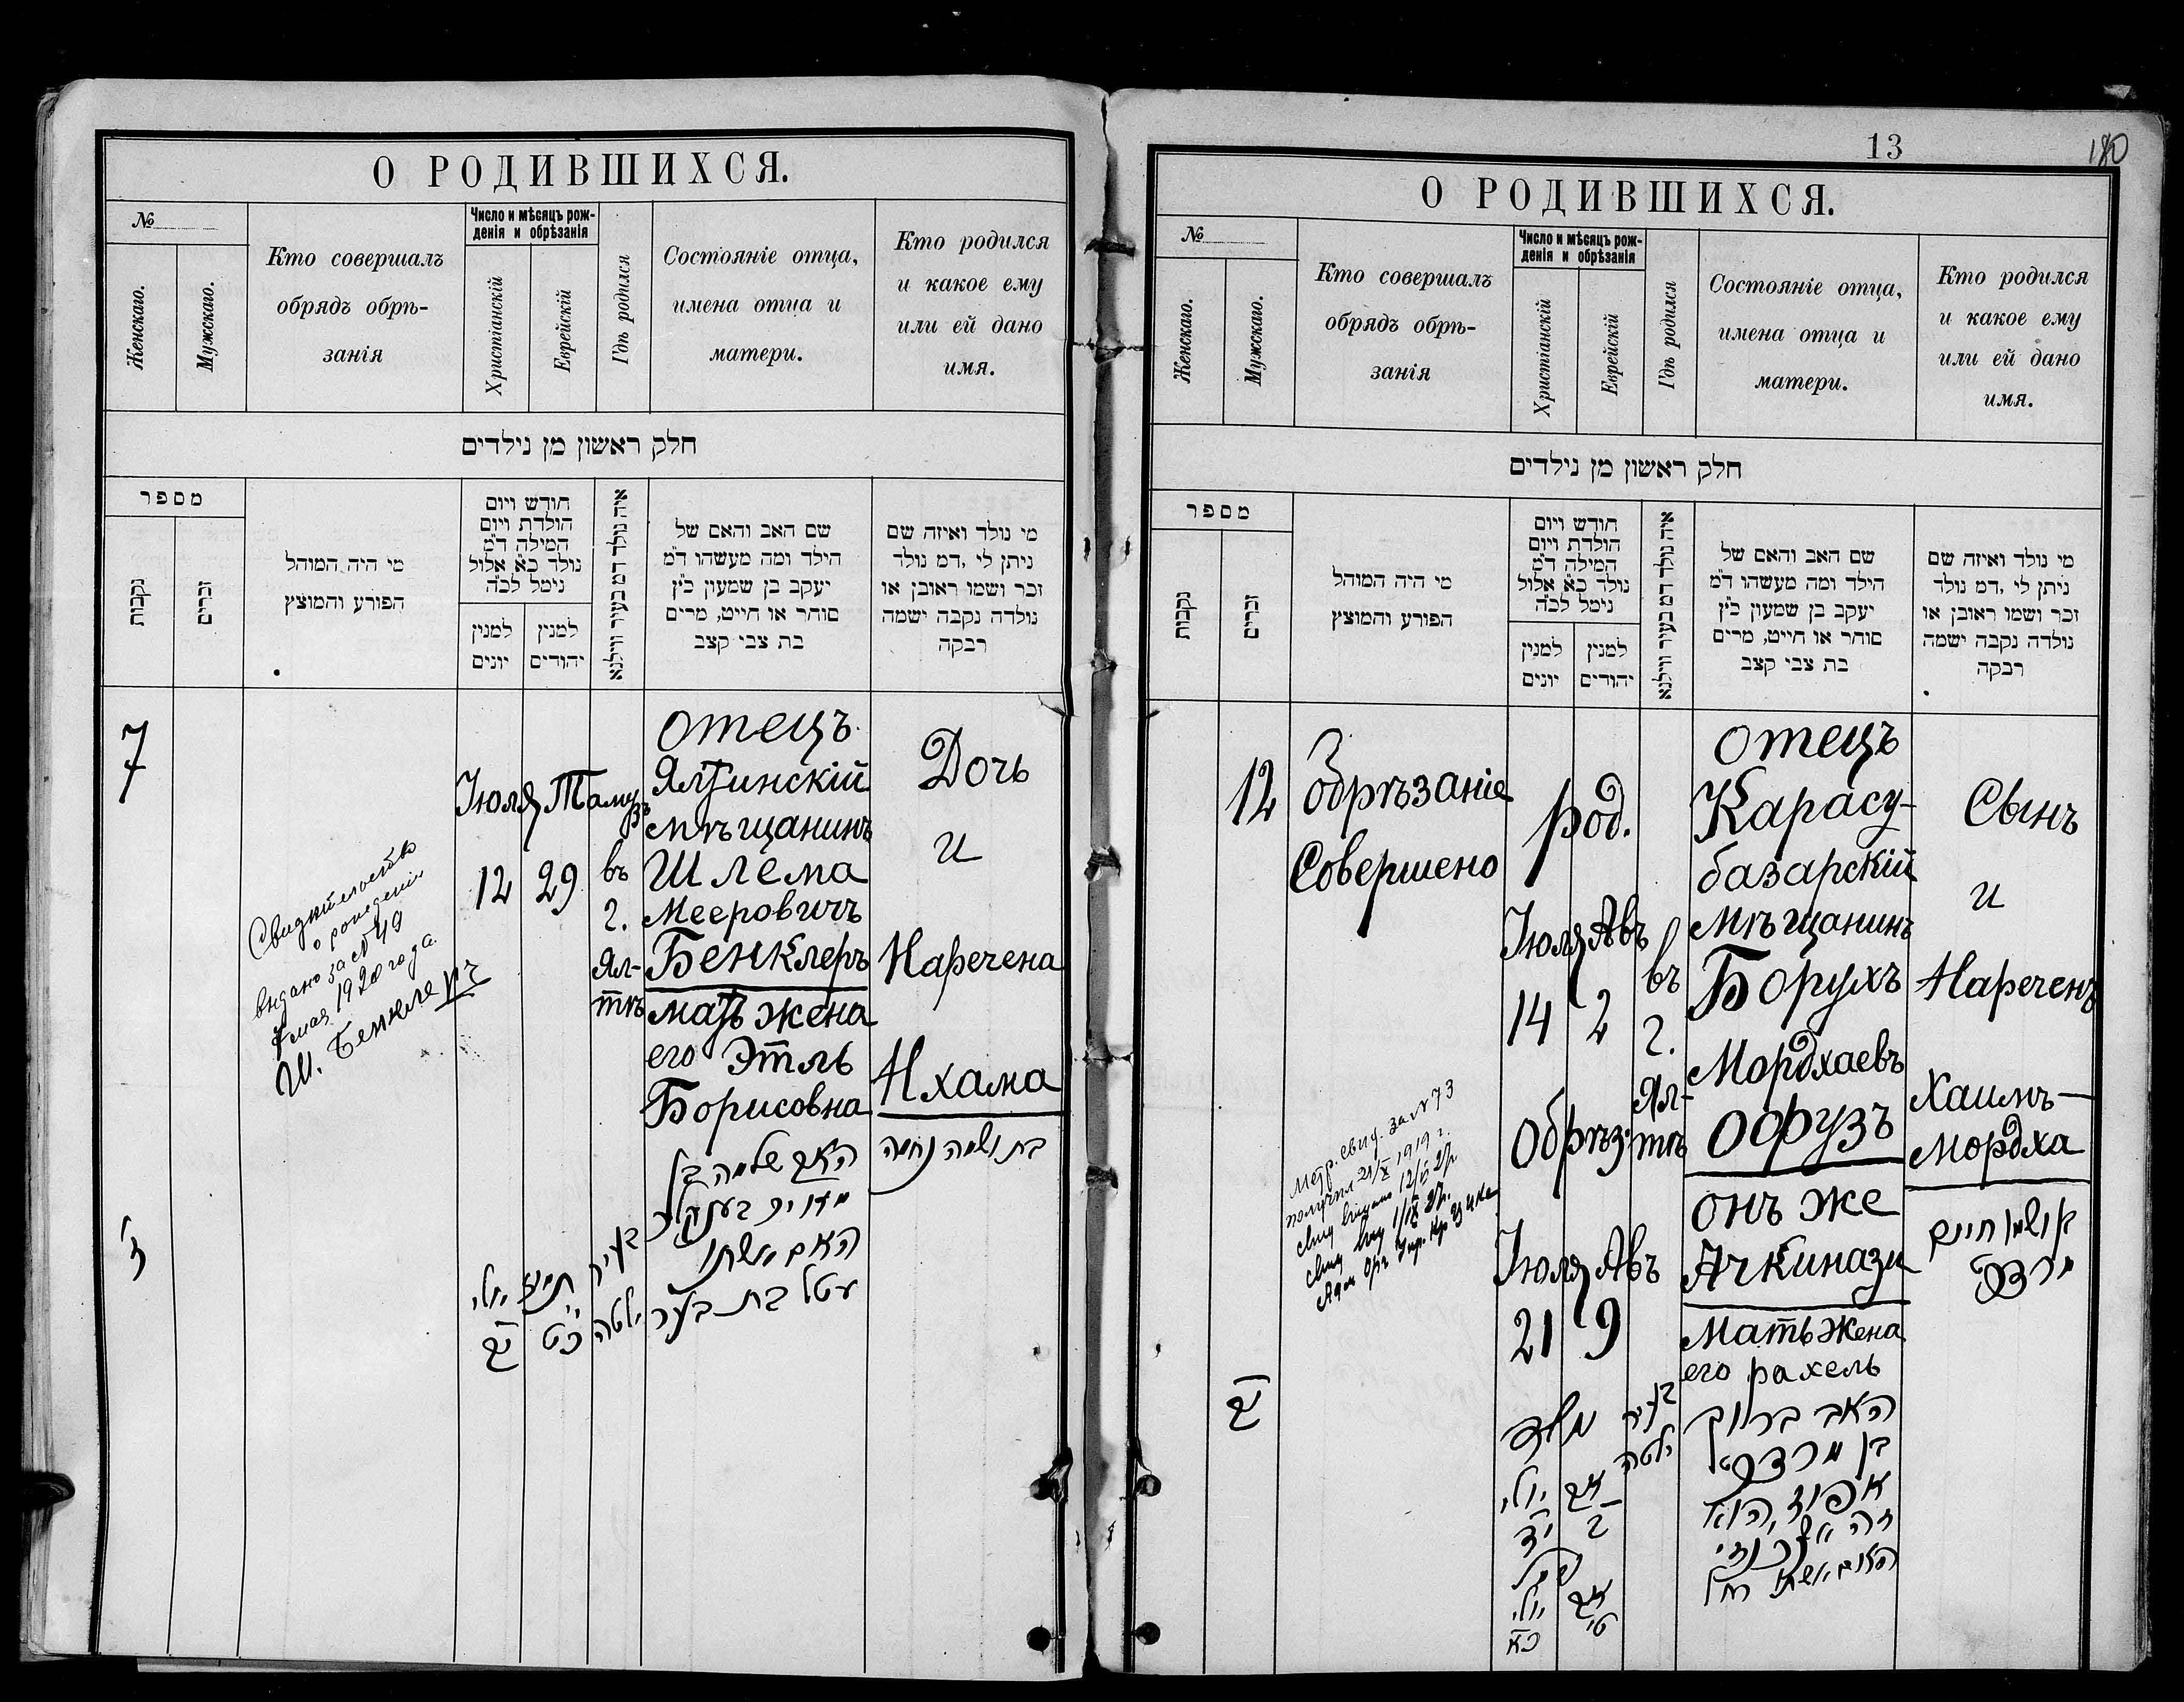 О РОДИВШИХСЯ.
№
Женскаго.
Мужскаго.
Кто совершалъ
обрядъ обрѣ-
занія
Число и мѣсяцъ рож-
денія и обрѣзанія
Христіанскій
Еврейскій
Гдѣ родился
Состояніе отца,
имена отца и
матери.
Кто родился
и какое ему
или ей дано
имя.
חלק ראשון מן נילדים
מספר
נקבות
זכרים
מי היה המוהל
הפורע והמוצץ
חודש ויום
הולדת ויום
המילה ד"מ
נולד כ"א אלול
נימל לכ"ה
למנין
יונים
למנין
יהודים
איה נולד דמ בעיר ווילנא
שם האב והאם של
הילד ומה מעשהו ד"מ
יעקב בן שמעון כ"ץ
סוחר או חייט, מרים
בת צבי קצב
מי נולד ואיזה שם
ניתן לי, דמ נולד
זכר ושמו ראובן או
נולדה נקבה ישמה
רבקה
7
Свидѣтельство
о рожденіи
выдано за № 49
7 мая 1920 года
Ш. Бенклеръ
Іюля
12
Тамузъ
29
въ
г.
Ял-
тѣ
отецъ
Ялтинскій
мѣщанинъ
Шлема
Мееровичъ
Бенклеръ
мать жена
его Этль
Борисовна
Дочь
и
Наречена
Нхама
ז'
יולי
יב
תמוז
כ"ט
בעיר
ילטה
האב שלמה בן
מאיר בענקלר
האם אשתו
עטל בת בער
בת ושמה נחמה
13
180
О РОДИВШИХСЯ.
№
Женскаго.
Мужскаго.
Кто совершалъ
обрядъ обрѣ-
занія
Число и мѣсяцъ рож-
денія и обрѣзанія
Христіанскій
Еврейскій
Гдѣ родился
Состояніе отца,
имена отца и
матери.
Кто родился
и какое ему
или ей дано
имя.
חלק ראשון מן נילדים
מספר
נקבות
זכרים
מי היה המוהל
הפורע והמוצץ
חודש ויום
הולדת ויום
המילה ד"מ
נולד כ"א אלול
נימל לכ"ה
למנין
יונים
למנין
יהודים
איה נולד דמ בעיר ווילנא
שם האב והאם של
הילד ומה מעשהו ד"מ
יעקב בן שמעון כ"ץ
סוחר או חייט, מרים
בת צבי קצב
מי נולד ואיזה שם
ניתן לי, דמ נולד
זכר ושמו ראובן או
נולדה נקבה ישמה
רבקה
12
Обрѣзаніе
Совершено
Метр. свид. за № 73
получил 21/X 1919 г.
род.
Іюля Авъ
14 2
Обрѣз.
Іюля Авъ
21 9
въ
г.
Ял-
тѣ
отецъ
Карасу-
базарскій
мѣщанинъ
Борухъ
Мордхаевъ
Офузъ
онъ же
Ачкинази
Мать жена
его рахель
Сынъ
и
Нареченъ
Хаимъ-
Мордха
יב
נולד
יולי אב
יד ב
נימול
יולי אב
כא ט'
בעיר
ילטה
האב ברוך
בן מרדכי
אפוז, הוא
האם אשתו רחל
בן ושמו חיים
מרדכי